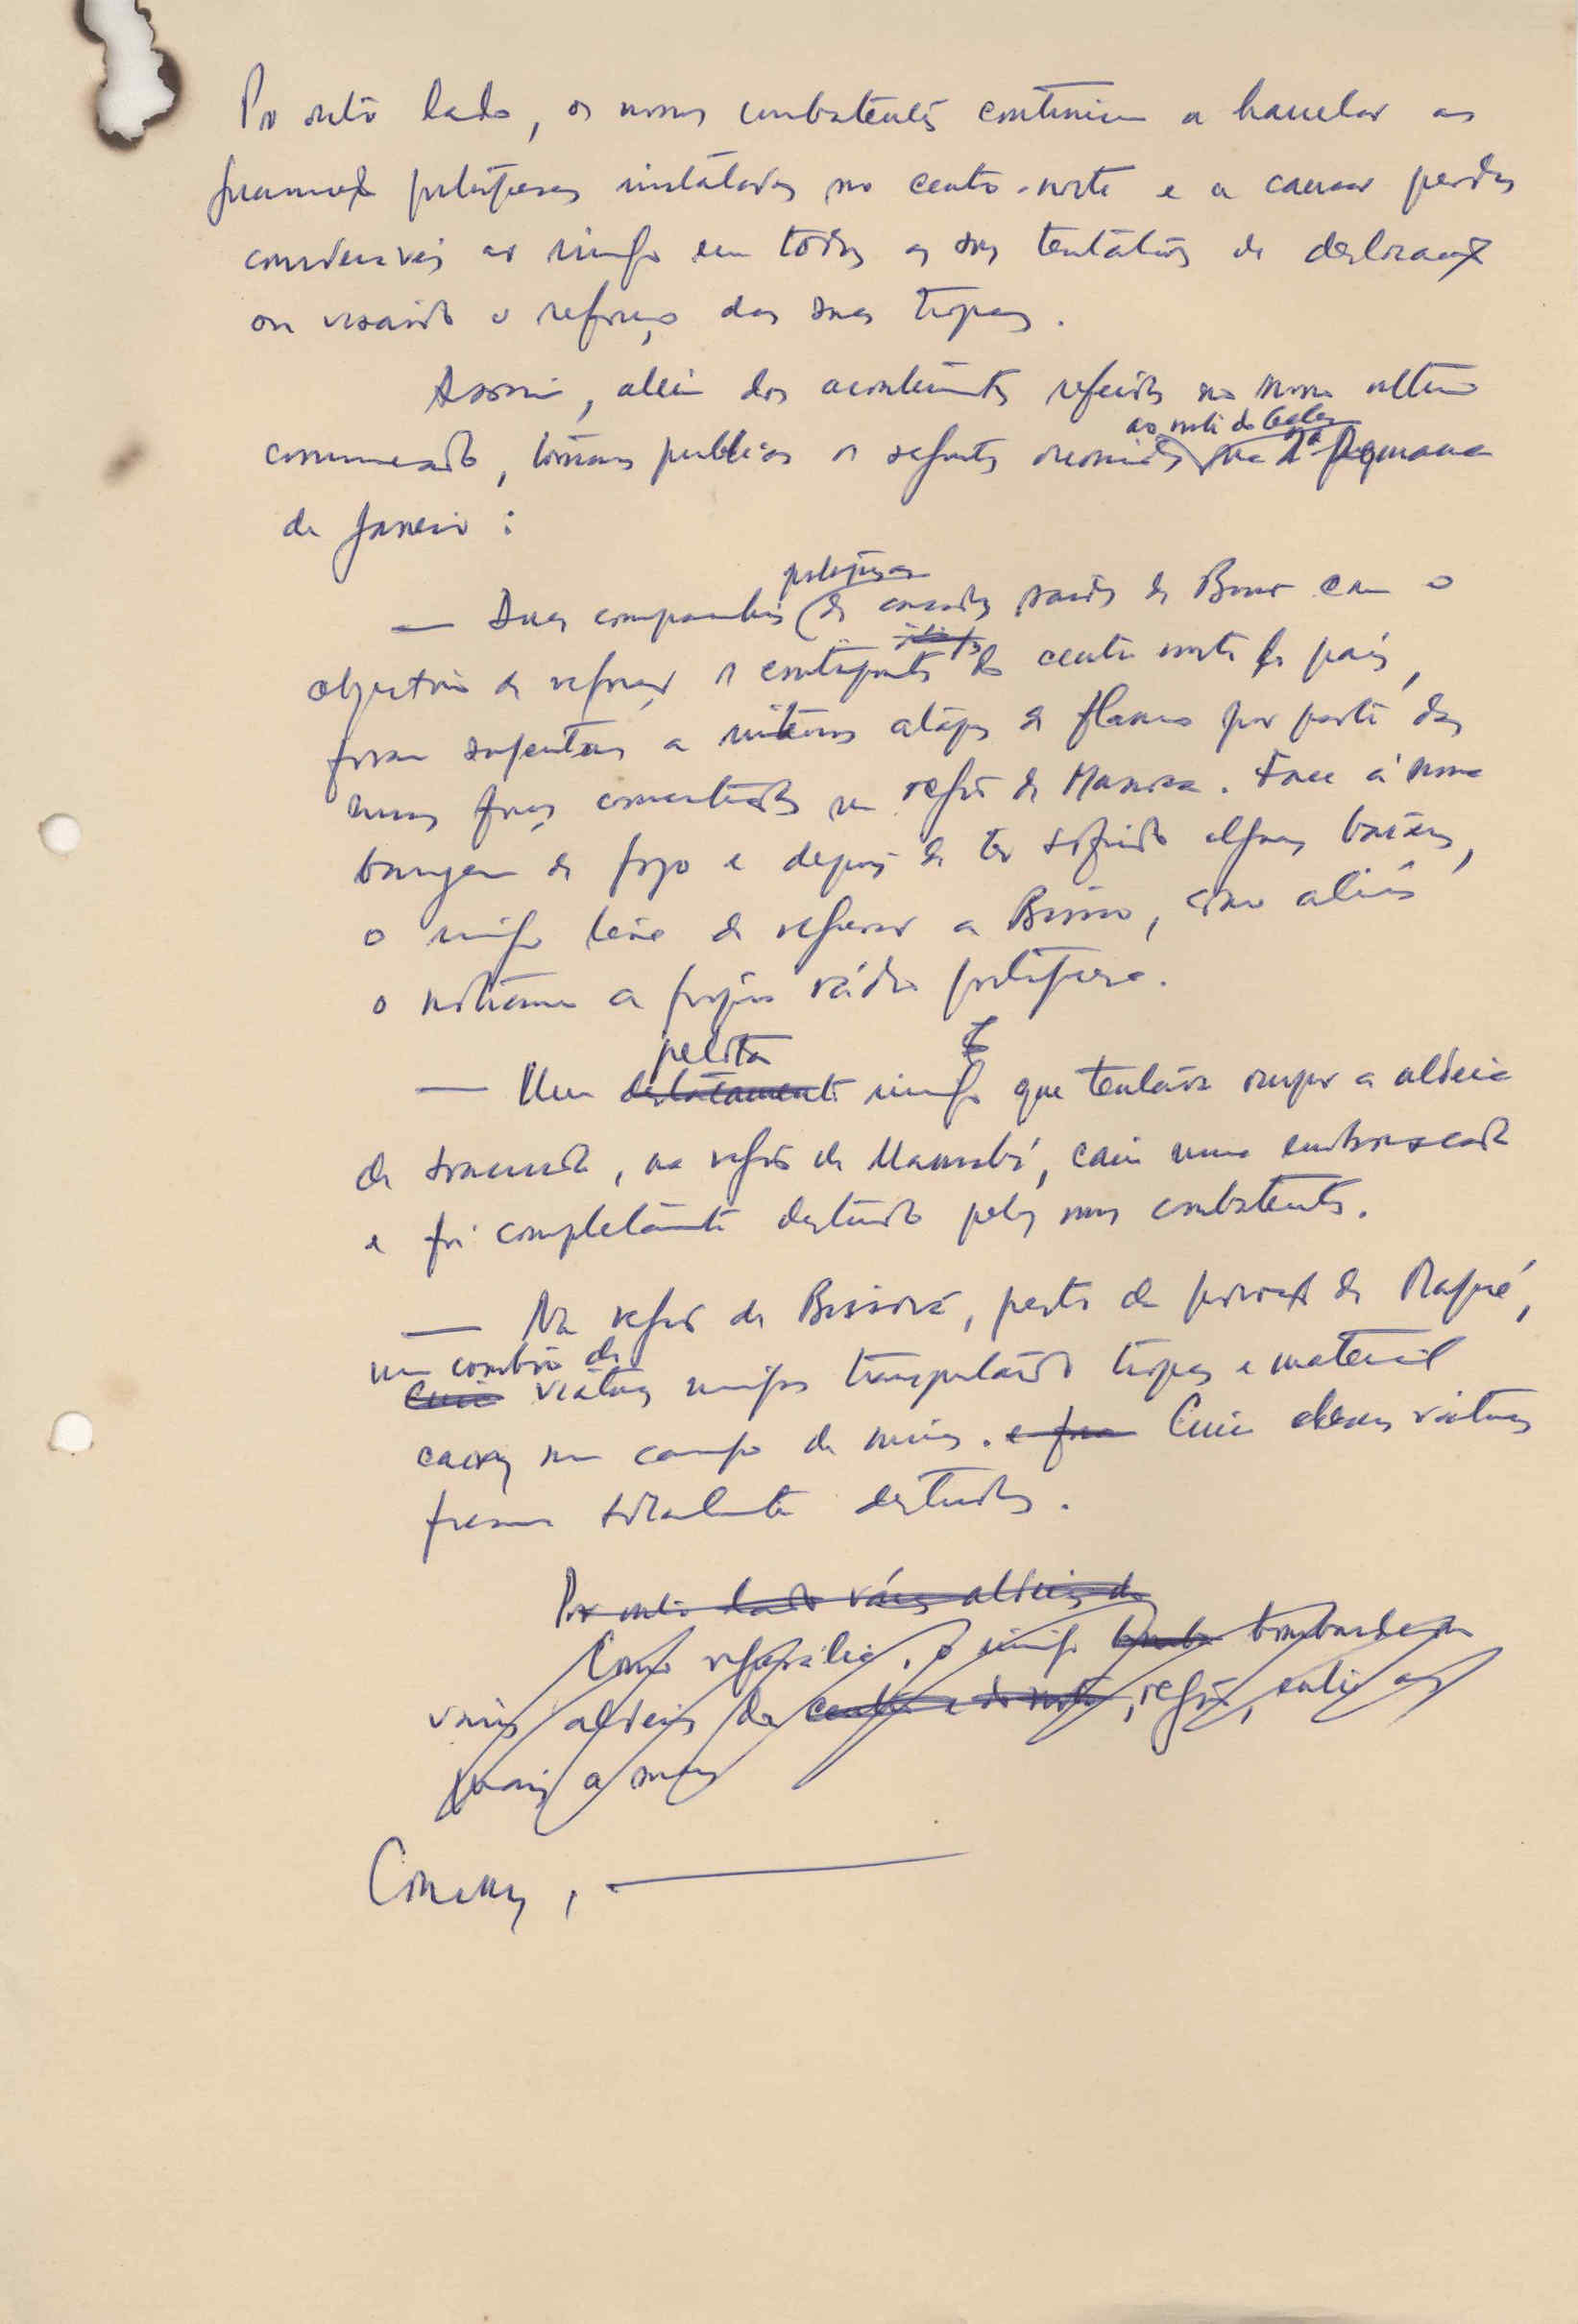 Por outro lado, os nossos combatentes continuam a as
portuguesas instaladas no centro-norte e a causar perdas
consideráveis ao inimigo em todas as suas tentativas de deslocação
ou visando o reforço das suas tropas.
Assim, além dos acontecimentos referidos no nosso último
ao norte do Geba
comunicado, tornamos públicos os seguintes ocorridos na 2ª semana
de Janeiro :
portuguesas
— Duas companhias de saídas de Bissau com o
objectivo de reforçar os contingentes do centro norte do país,
foram sujeitas a intensos ataques de flanco por parte das
nossas forças concentradas na região de Mansoa. Face à nossa
barragem de fogo e depois de ter sofrido algumas baixas,
o inimigo teve de regressar a Bissau, como aliás
o noticiou a própria rádio portuguesa.
pelotão
— Um destacamento inimigo que tentava ocupar a aldeia
de , na região de , caiu numa emboscada
e foi completamente destruído pelos nossos combatentes.
— Na região de Bissorã, perto da povoação de Maqué,
um comboio de
cinco viaturas inimigas transportando tropas e material
caiu num campo de minas. e foram Cinco dessas viaturas
foram totalmente destruídas.
Por outro lado várias aldeias do
Como represália, o inimigo bombardeou
várias aldeias da centro e do norte, região, entre as
quais as
Conakry, —